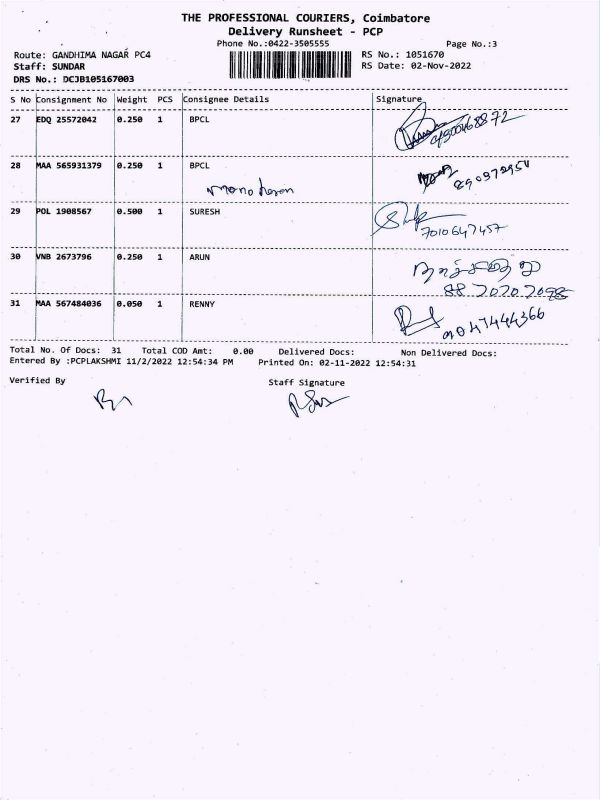 THE PROFESSIONAL COURIERS, Coimbatore
Delivery Runsheet - PCP
Phone No.:0422-3505555 Page No.:3
Route: GANDHIMA NAGAR PC4 RS No.: 1051670
Staff: SUNDAR RS Date: 02-Nov-2022
DRS No.: DCJB105167003
S No Consignment No Weight PCS Consignee Details Signature
27 EDQ 25572042 0.250 1 BPCL
28 MAA 565931379 0.250 1 BPCL
manoharan
29 POL 1908567 0.500 1 SURESH
7010647457
30 VNB 2673796 0.250 1 ARUN
88 70707098
31 MAA 567484036 0.050 1 RENNY
9047444366
Total No. Of Docs: 31 Total COD Amt: 0.00 Delivered Docs: Non Delivered Docs:
Entered By :PCPLAKSHMI 11/2/2022 12:54:34 PM Printed On: 02-11-2022 12:54:31
Verified By Staff Signature